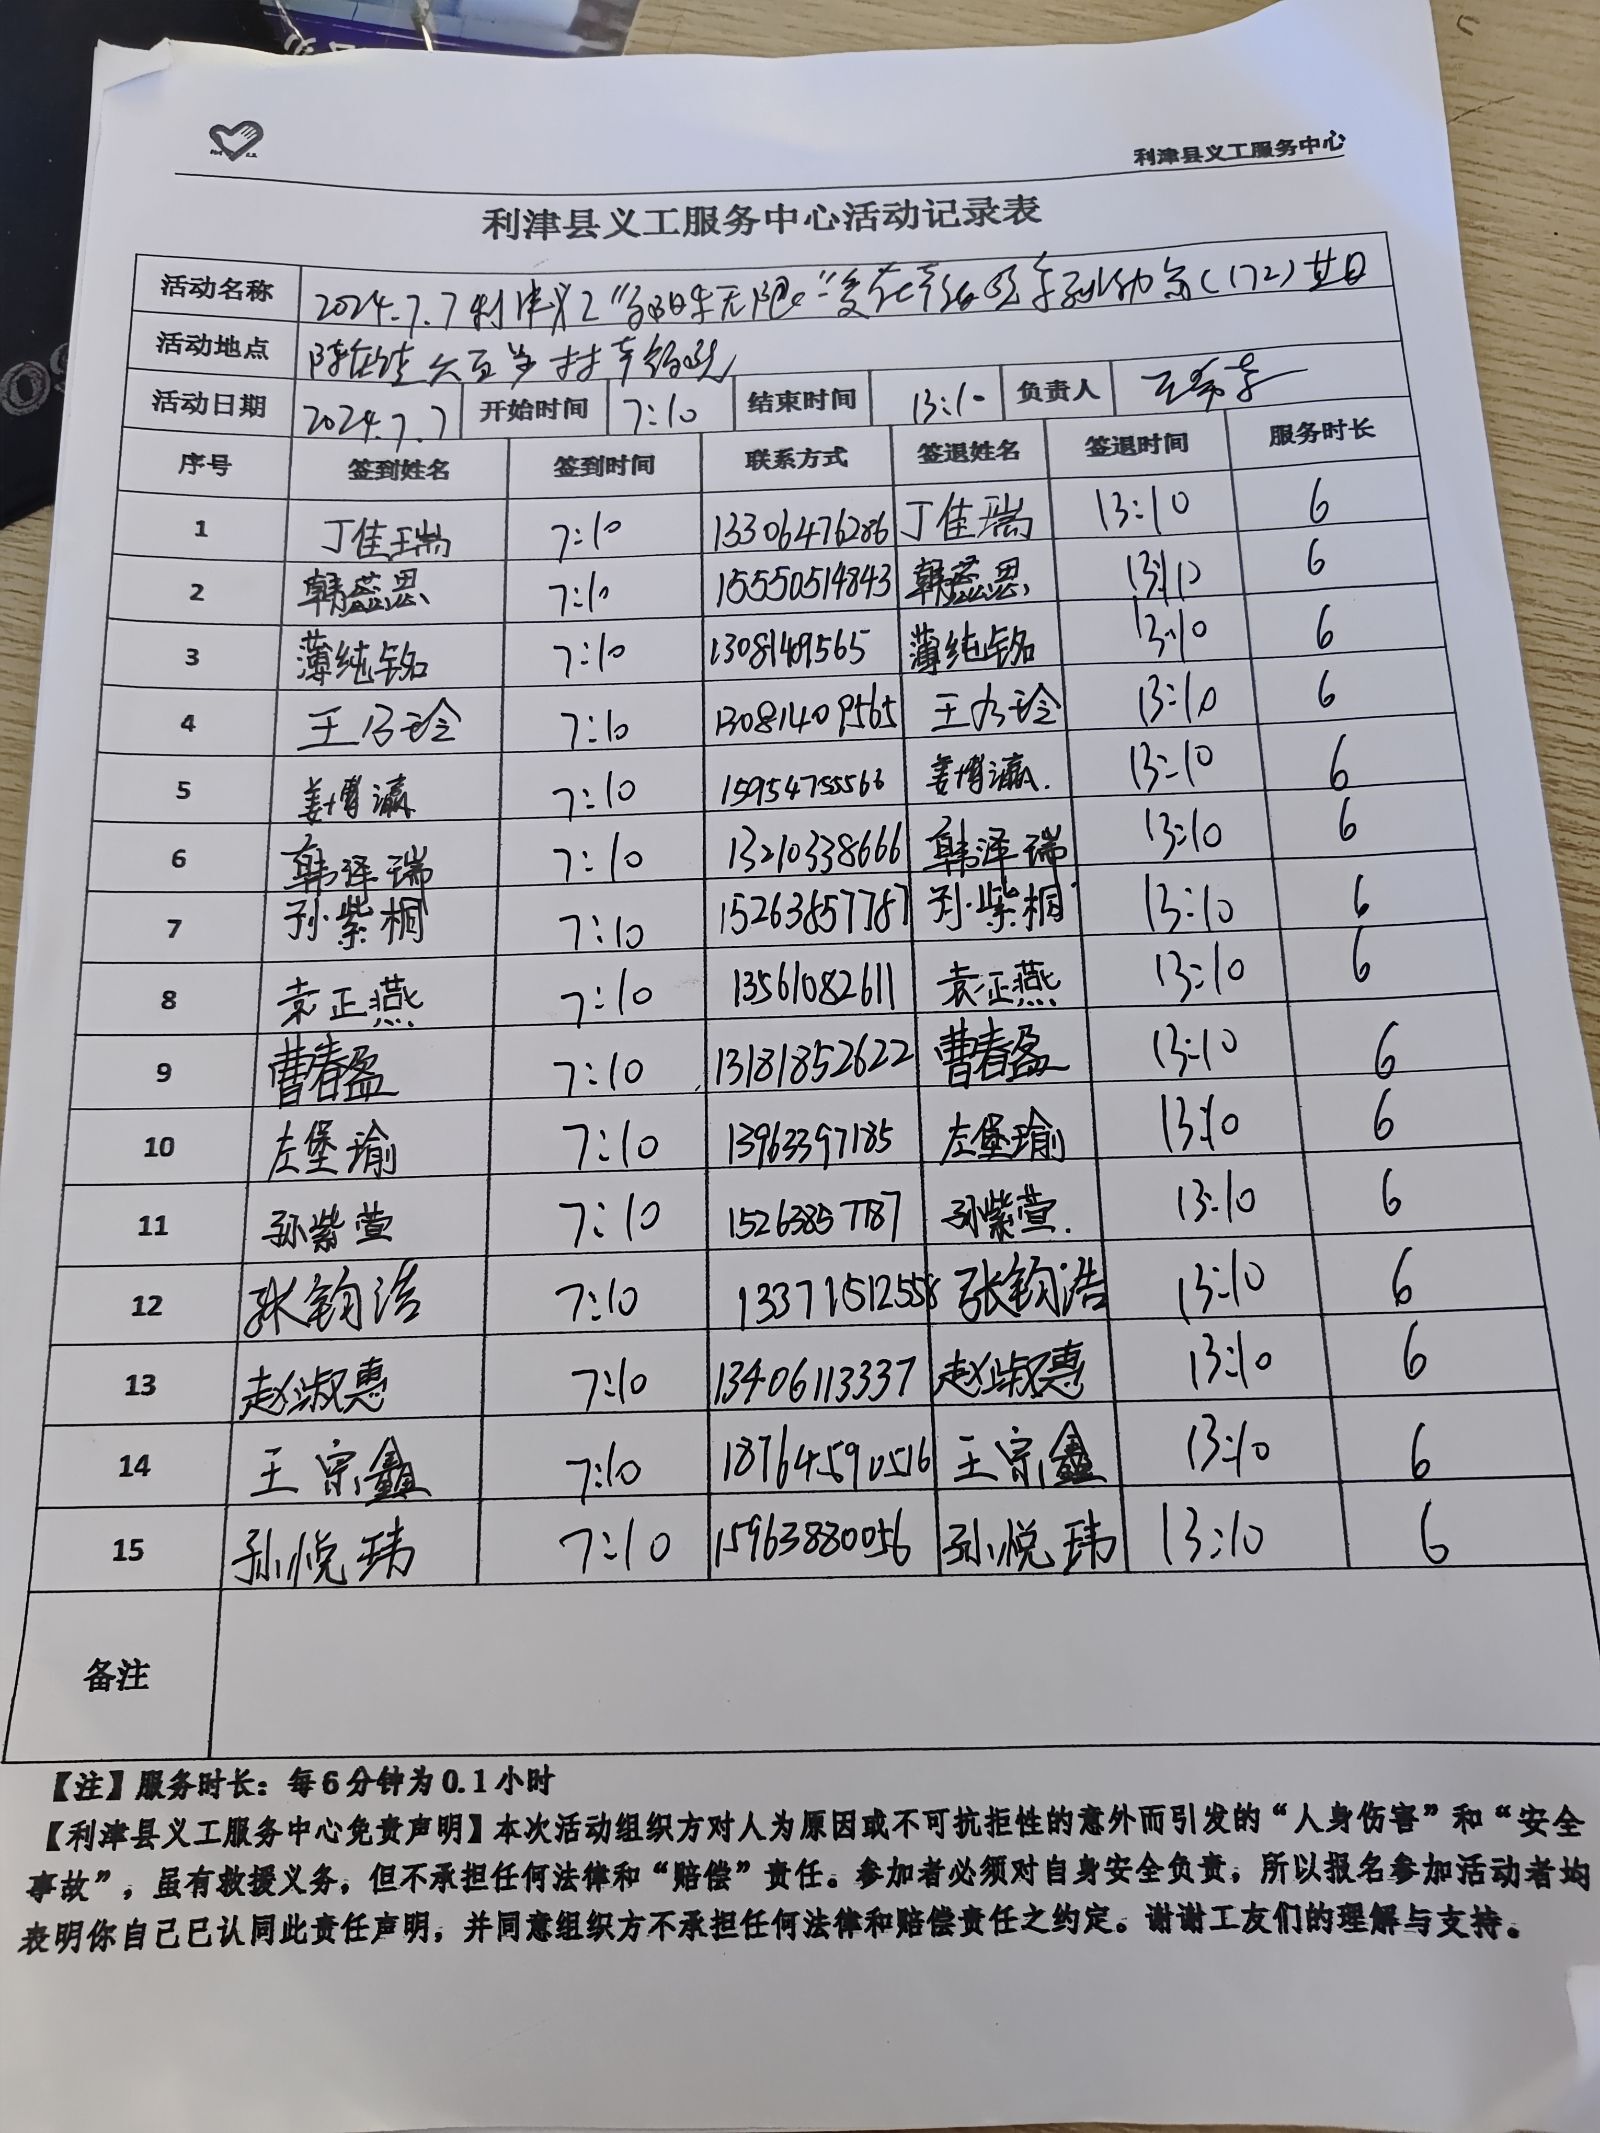 利津县义工服务中心
利津县义工服务中心活动记录表
活动名称 2024.7.7利津义工"夕阳无限"爱在幸福院系列活动(172)其日
活动地点 陈庄镇六百步村幸福院
活动日期 2024.7.7 开始时间 7:10 结束时间 13:10 负责人
序号 签到姓名 签到时间 联系方式 签退姓名 签退时间 服务时长
1 丁佳瑞 7:10 13306476286 丁佳瑞 13:10 6
2 韩蕊思 7:10 15550514843 韩蕊思 13:10 6
3 薄纯铭 7:10 1308149565 薄纯铭 13:10 6
4 王乃玲 7:10 13081409565 王乃玲 13:10 6
5 姜博瀛 7:10 15954755566 姜博瀛. 13:10 6
6 韩泽瑞 7:10 13210338666 韩泽瑞 13:10 6
7 孙紫桐 7:10 15263857787 孙紫桐 13:10 6
8 袁正燕 7:10 13561082611 袁正燕 13:10 6
9 曹春盈 7:10 13181852622 曹春盈 13:10 6
10 左堡瑜 7:10 13963397185 左堡瑜 13:10 6
11 孙紫萱 7:10 15263857787 孙紫萱. 13:10 6
12 张钧浩 7:10 13371512558 张钧浩 13:10 6
13 赵淑惠 7:10 13406113337 赵淑惠 13:10 6
14 王宗鑫 7:10 18764590516 王宗鑫 13:10 6
15 孙悦玮 7:10 15963880056 孙悦玮 13:10 6
备注
【注】服务时长：每6分钟为0.1小时
【利津县义工服务中心免责声明】本次活动组织方对人为原因或不可抗拒性的意外而引发的“人身伤害”和“安全
事故”，虽有救援义务，但不承担任何法律和“赔偿”责任。参加者必须对自身安全负责，所以报名参加活动者均
表明你自己已认同此责任声明，并同意组织方不承担任何法律和赔偿责任之约定。谢谢工友们的理解与支持。